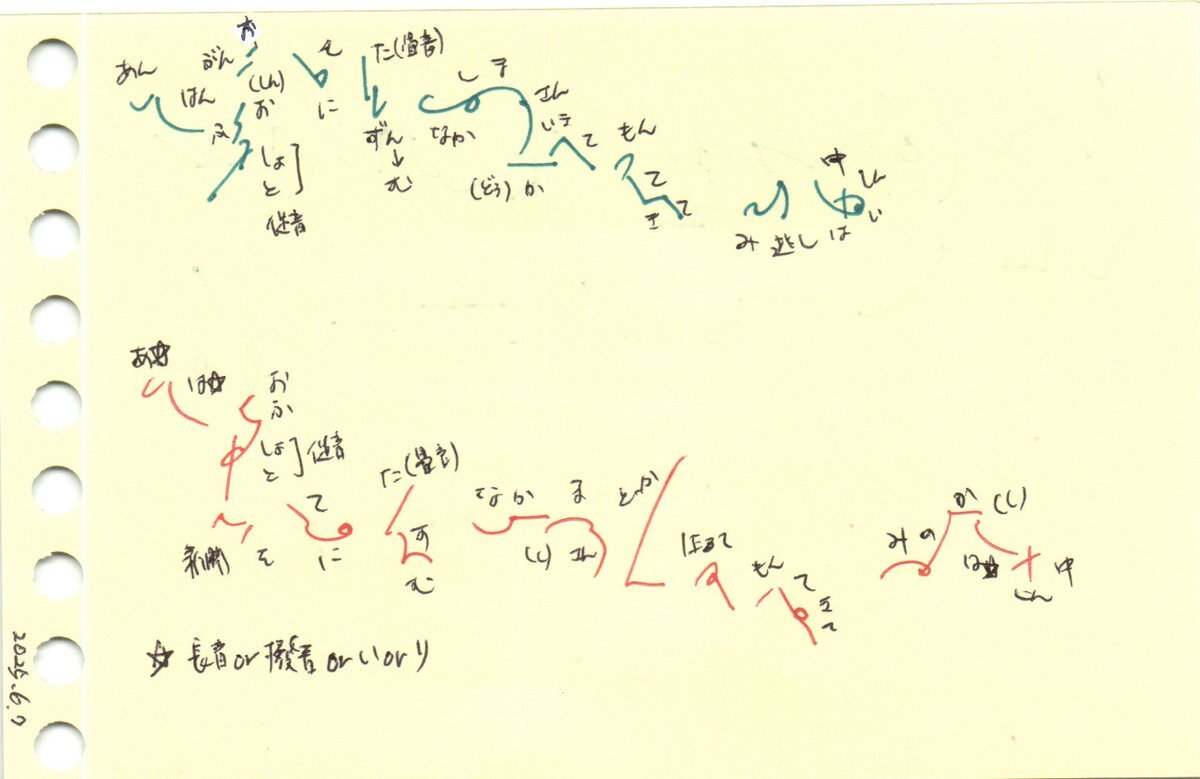 お
あん がん そ た(畳音)
はん (しん) し す
お に さん
ふ ずん なか いう て もん
しょ ↓
と む (どう) か て
促音 き て
中 しん
み 逃し は い
あ☆ は☆ お
ふ
しょ 促音
と た(畳音)
て なか ま とか か (し)
新聞 そ に す (し) さん みの
む もん て は☆ 中
き じん
て
☆ 長音or撥音orいorり
2025.6.7